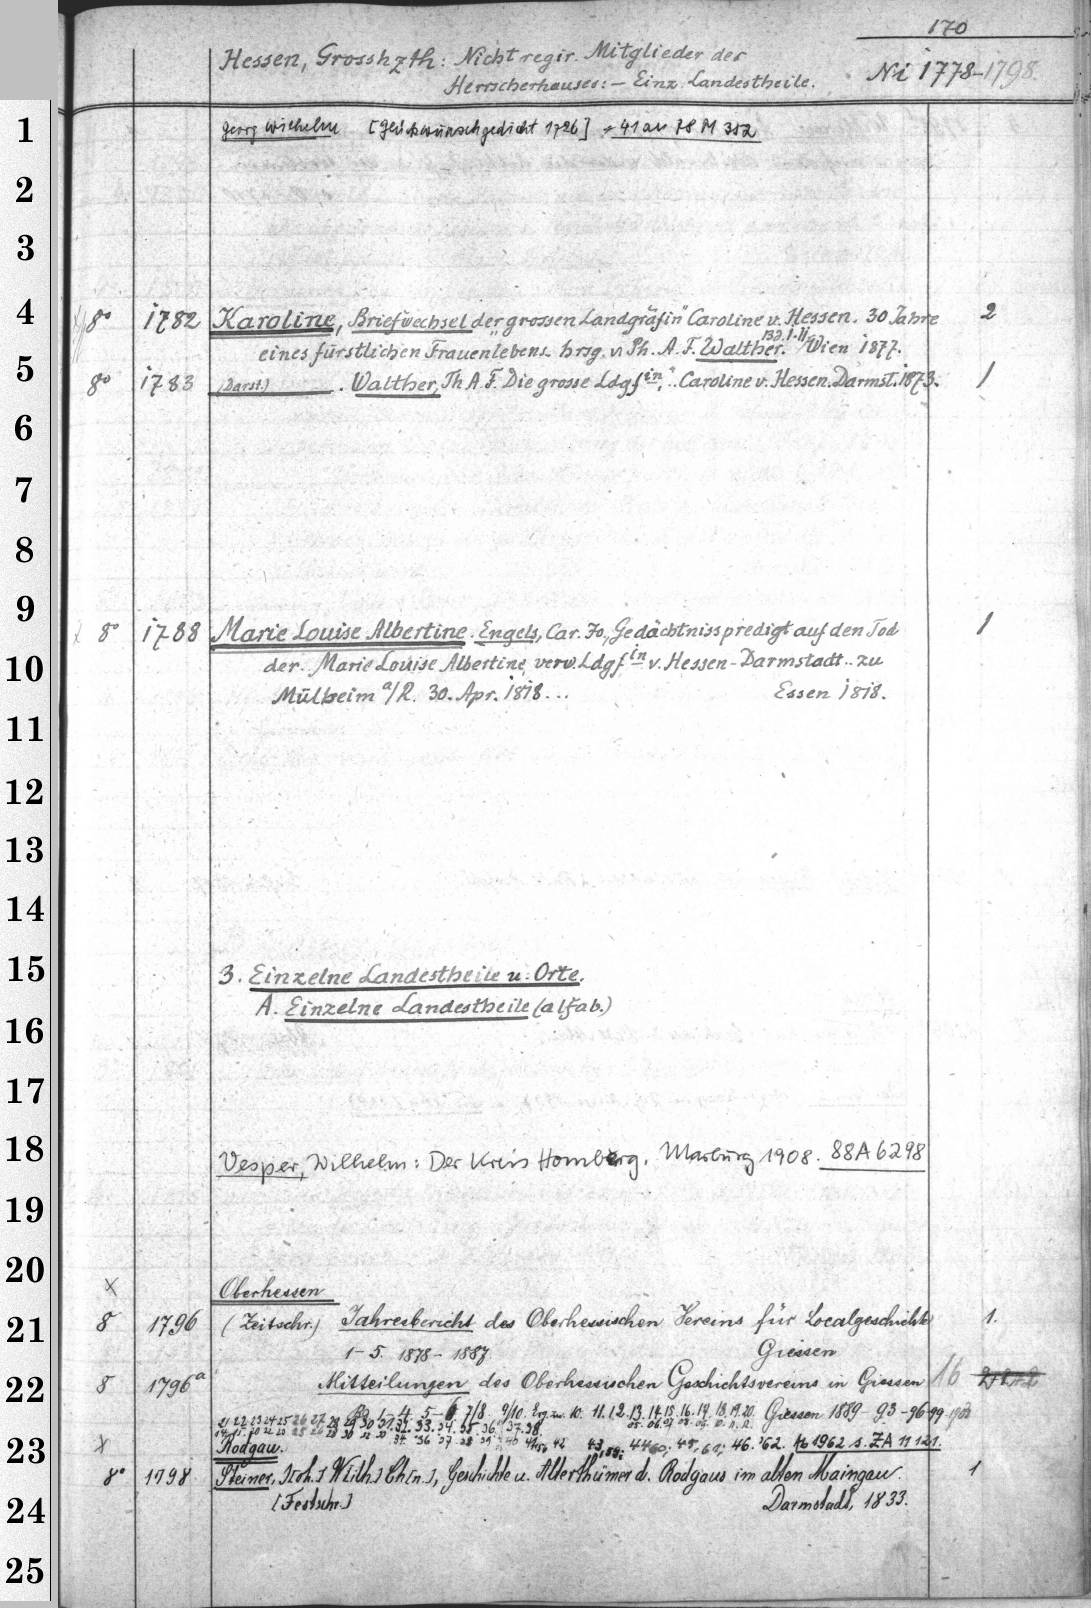 170
Hessen, Grosshzth: Nicht regir. Mitglieder des
Herrscherhauses: — Einz. Landestheile.
Ni 1778-1798.
1
Georg Wilhelm [Glückwunschgedicht 1726] → 41 an 78 M 352
2
3
4
8° 1782 Karoline, Briefwechsel der „grossen Landgräfin" Caroline v. Hessen. 30 Jahre 2
eines fürstlichen Frauenlebens hrsg. v. Ph. A. F. Walther. Bd. I-II. Wien 1877.
5
8° 1783 (Darst.) ——. Walther, Th A. F. Die grosse Ldgfin, .. Caroline v. Hessen. Darmst. 1873. 1
6
7
8
9
8° 1788 Marie Louise Albertine. Engels, Car. Jo., Gedächtnisspredigt auf den Tod 1
10
der.. Marie Louise Albertine, verw. Ldgfin v. Hessen-Darmstadt.. zu
Mülheim a/R. 30. Apr. 1818... Essen 1818.
11
12
13
14
15
3. Einzelne Landestheile u. Orte.
A. Einzelne Landestheile (alfab.)
16
17
18
Vesper, Wilhelm: Der Kreis Homberg. Marburg 1908. 88 A 6298
19
20
x Oberhessen
21
8 1796 (Zeitschr.) Jahresbericht des Oberhessischen Vereins für Localgeschichte 1.
1-5. 1878-1887 Giessen
22
8 1796a Mitteilungen des Oberhessischen Geschichtsvereins in Giessen 16
1-4. 5-6 7/8. 9/10. 10. 11. 12. 13. 14. 15. 16. 17. 18. 19. 20. Giessen 1889-93-96-99-
23
x Rodgau. 46. '62. Ab 1962 s. ZA 11 121.
8° 1798 Steiner, J[oh.] W[ilh.] Ch[n.], Geschichte u. Alterthümer d. Rodgaus im alten Maingau. 1
24
[Festschr.] Darmstadt, 1833.
25